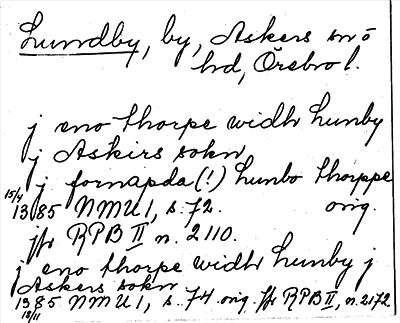 Lundby, by, Askers sn ö
hd, Örebro l.
j eno thorpe widh Lunby
j Askirs sokn
j fornæpda (!) Lunbo thorppe
15/4 1385 NMU 1, s. 72. orig.
jfr RPB II n. 2110.
j eno thorpe widh Lunby j
Askers sokn
1385 NMU 1, s. 74 orig. jfr RPB II, n. 2172.
18/11